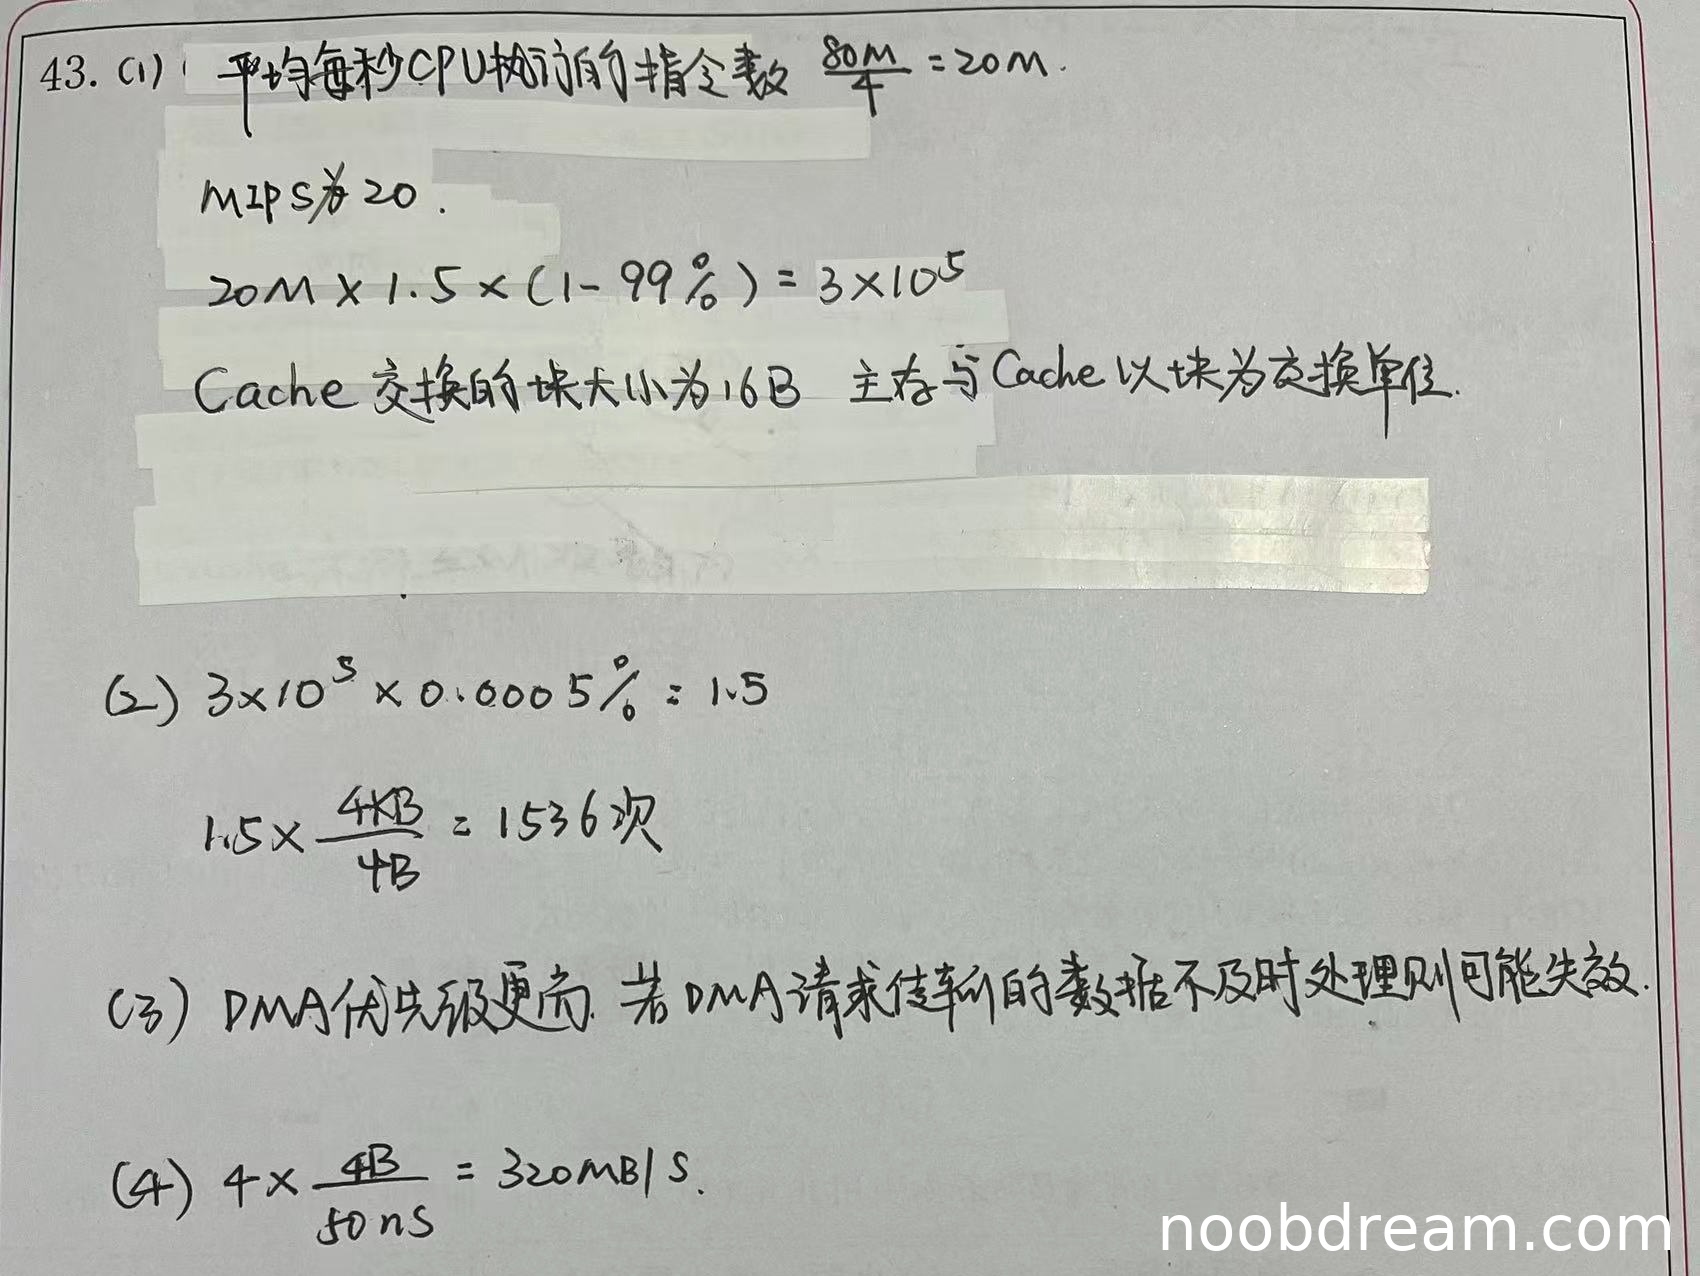 43. (1) 平均每秒CPU执行的指令数 80M/4 = 20M.
MIPS为20.
20M × 1.5 × (1-99%) = 3×10⁵
Cache交换的块大小为16B 主存与Cache以块为交换单位.
(2) 3×10⁵ × 0.0005% = 1.5
1.5 × 4KB/4B = 1536次
(3) DMA优先级更高. 若DMA请求传输的数据不及时处理则可能失效.
(4) 4 × 4B/50ns = 320MB/S.
noobdream.com